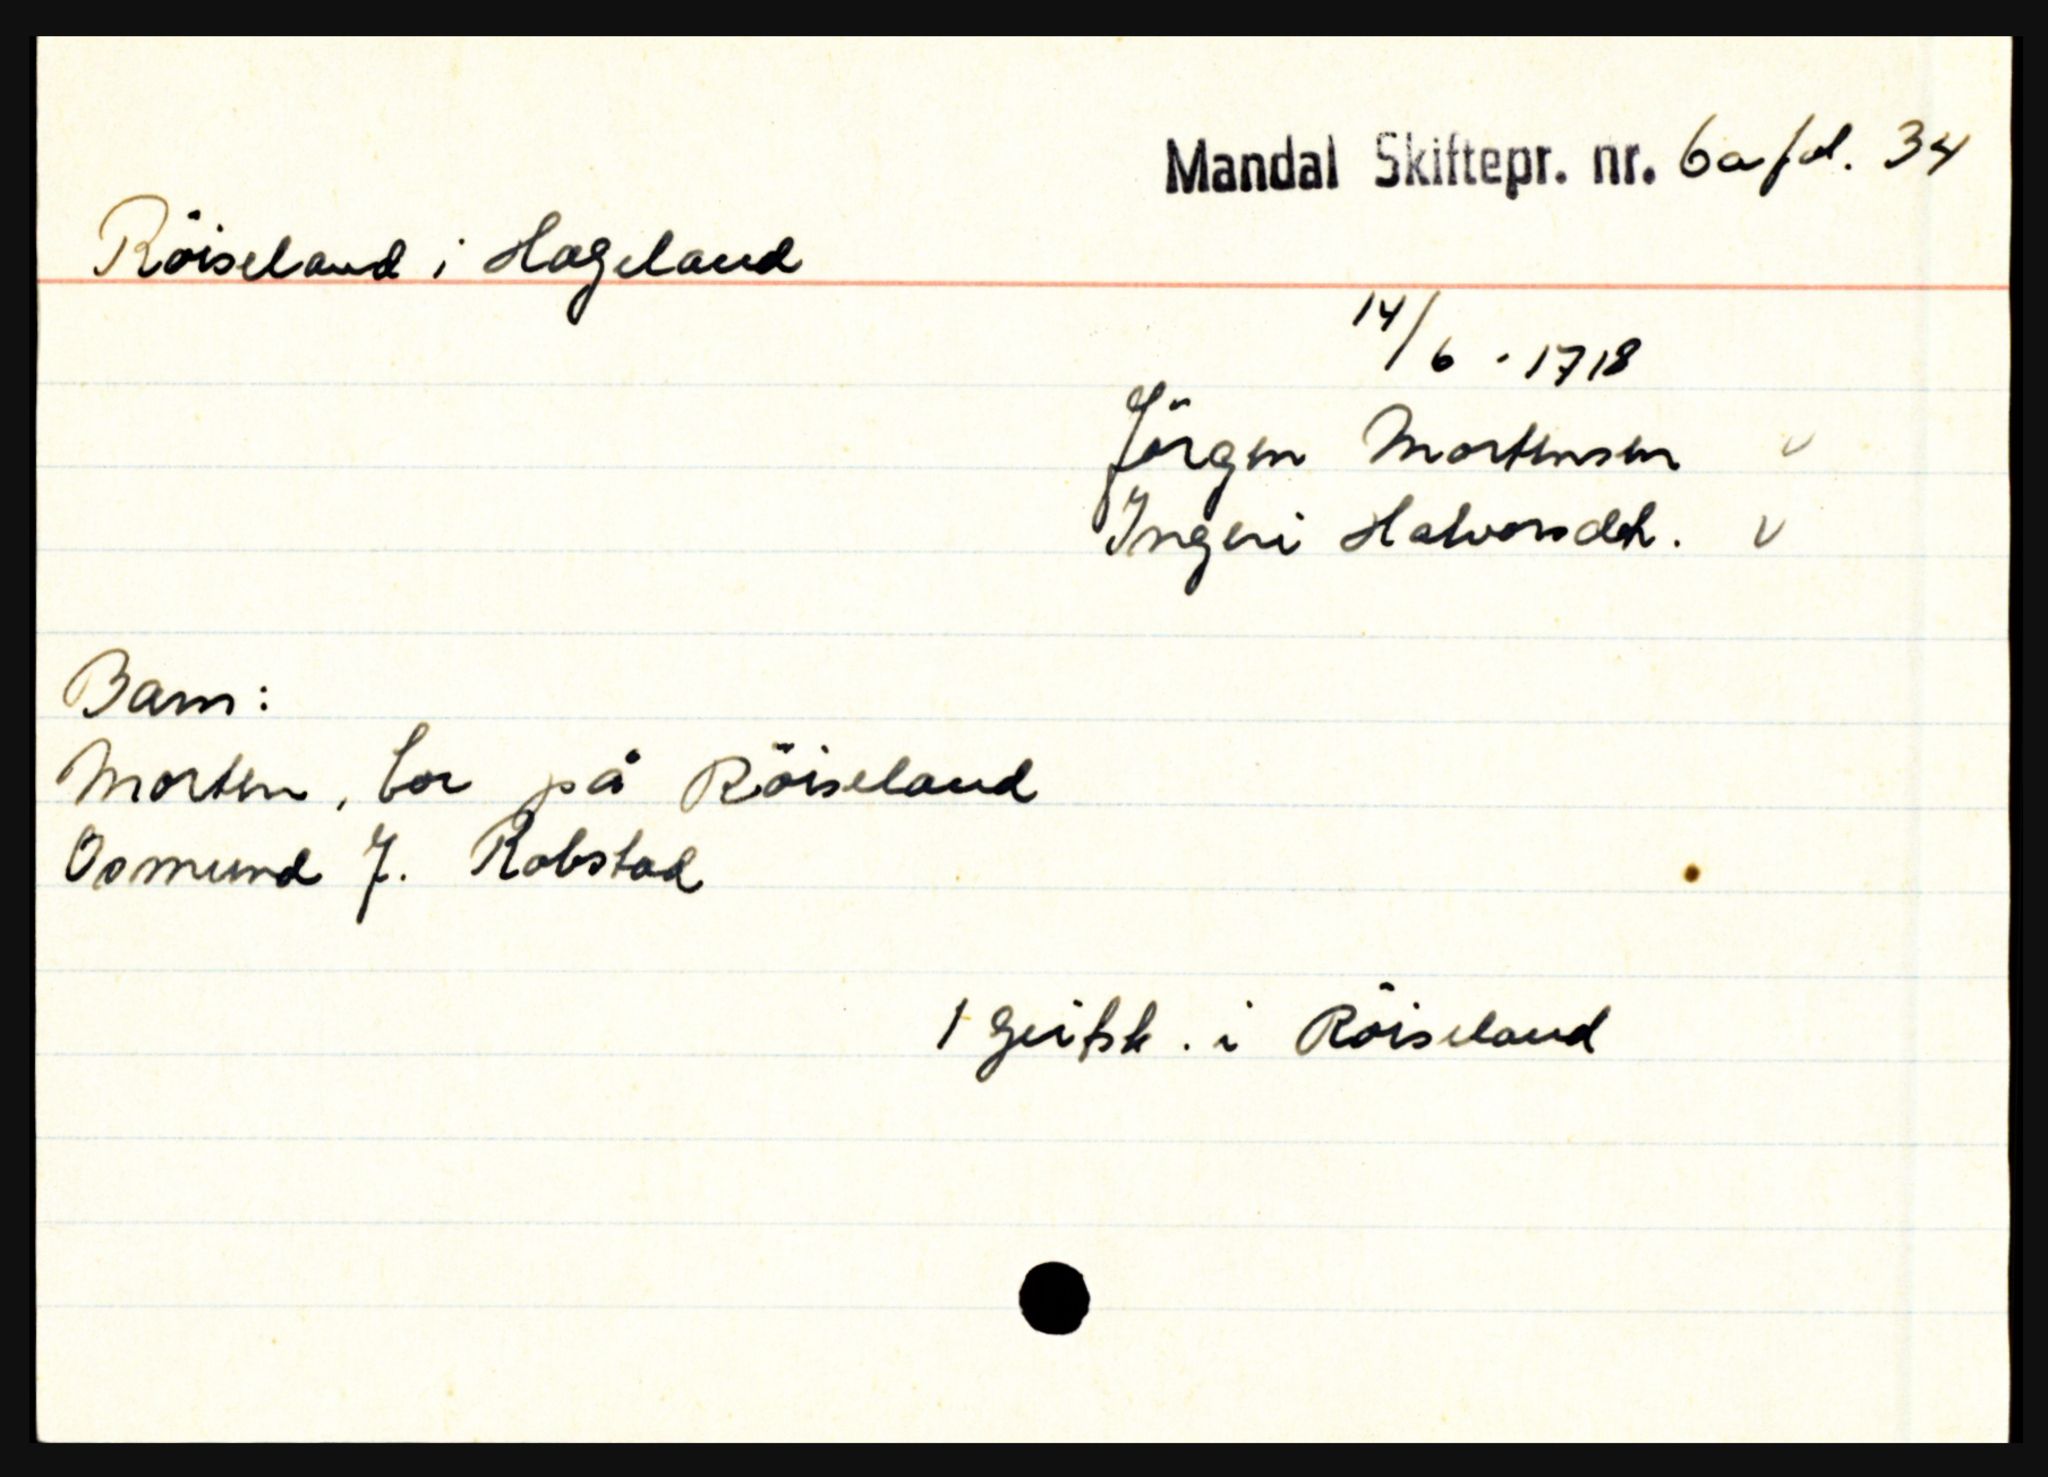 Mandal Skiftepr. nr. 6a fol. 34
Röiseland i Hægeland
14/6 - 1718
Jörgen Mortensen v
Ingeri Halvorsdtr. v
Barn:
Morten, bor på Röiseland
Osmund J. Robstad
1 geitsk. i Röiseland